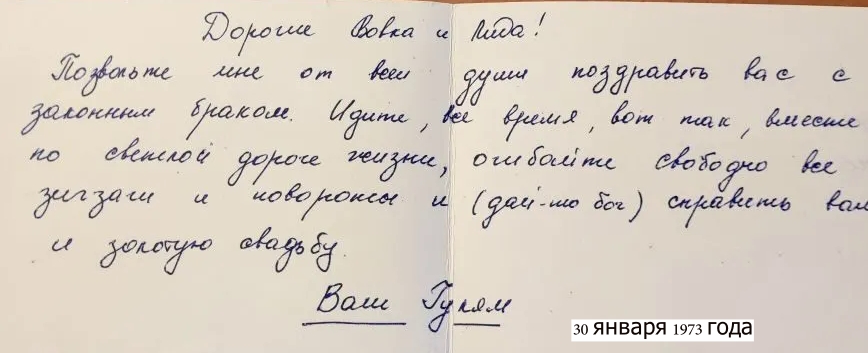 Дорогие Вовка и Лида!
Позвольте мне от всей души поздравить вас с
законным браком. Идите, все время, вот так, вместе
по светлой дороге жизни, огибайте свободно все
зигзаги и повороты и (дай-то бог) справить вам
и золотую свадьбу.
Ваш Гулям
30 января 1973 года